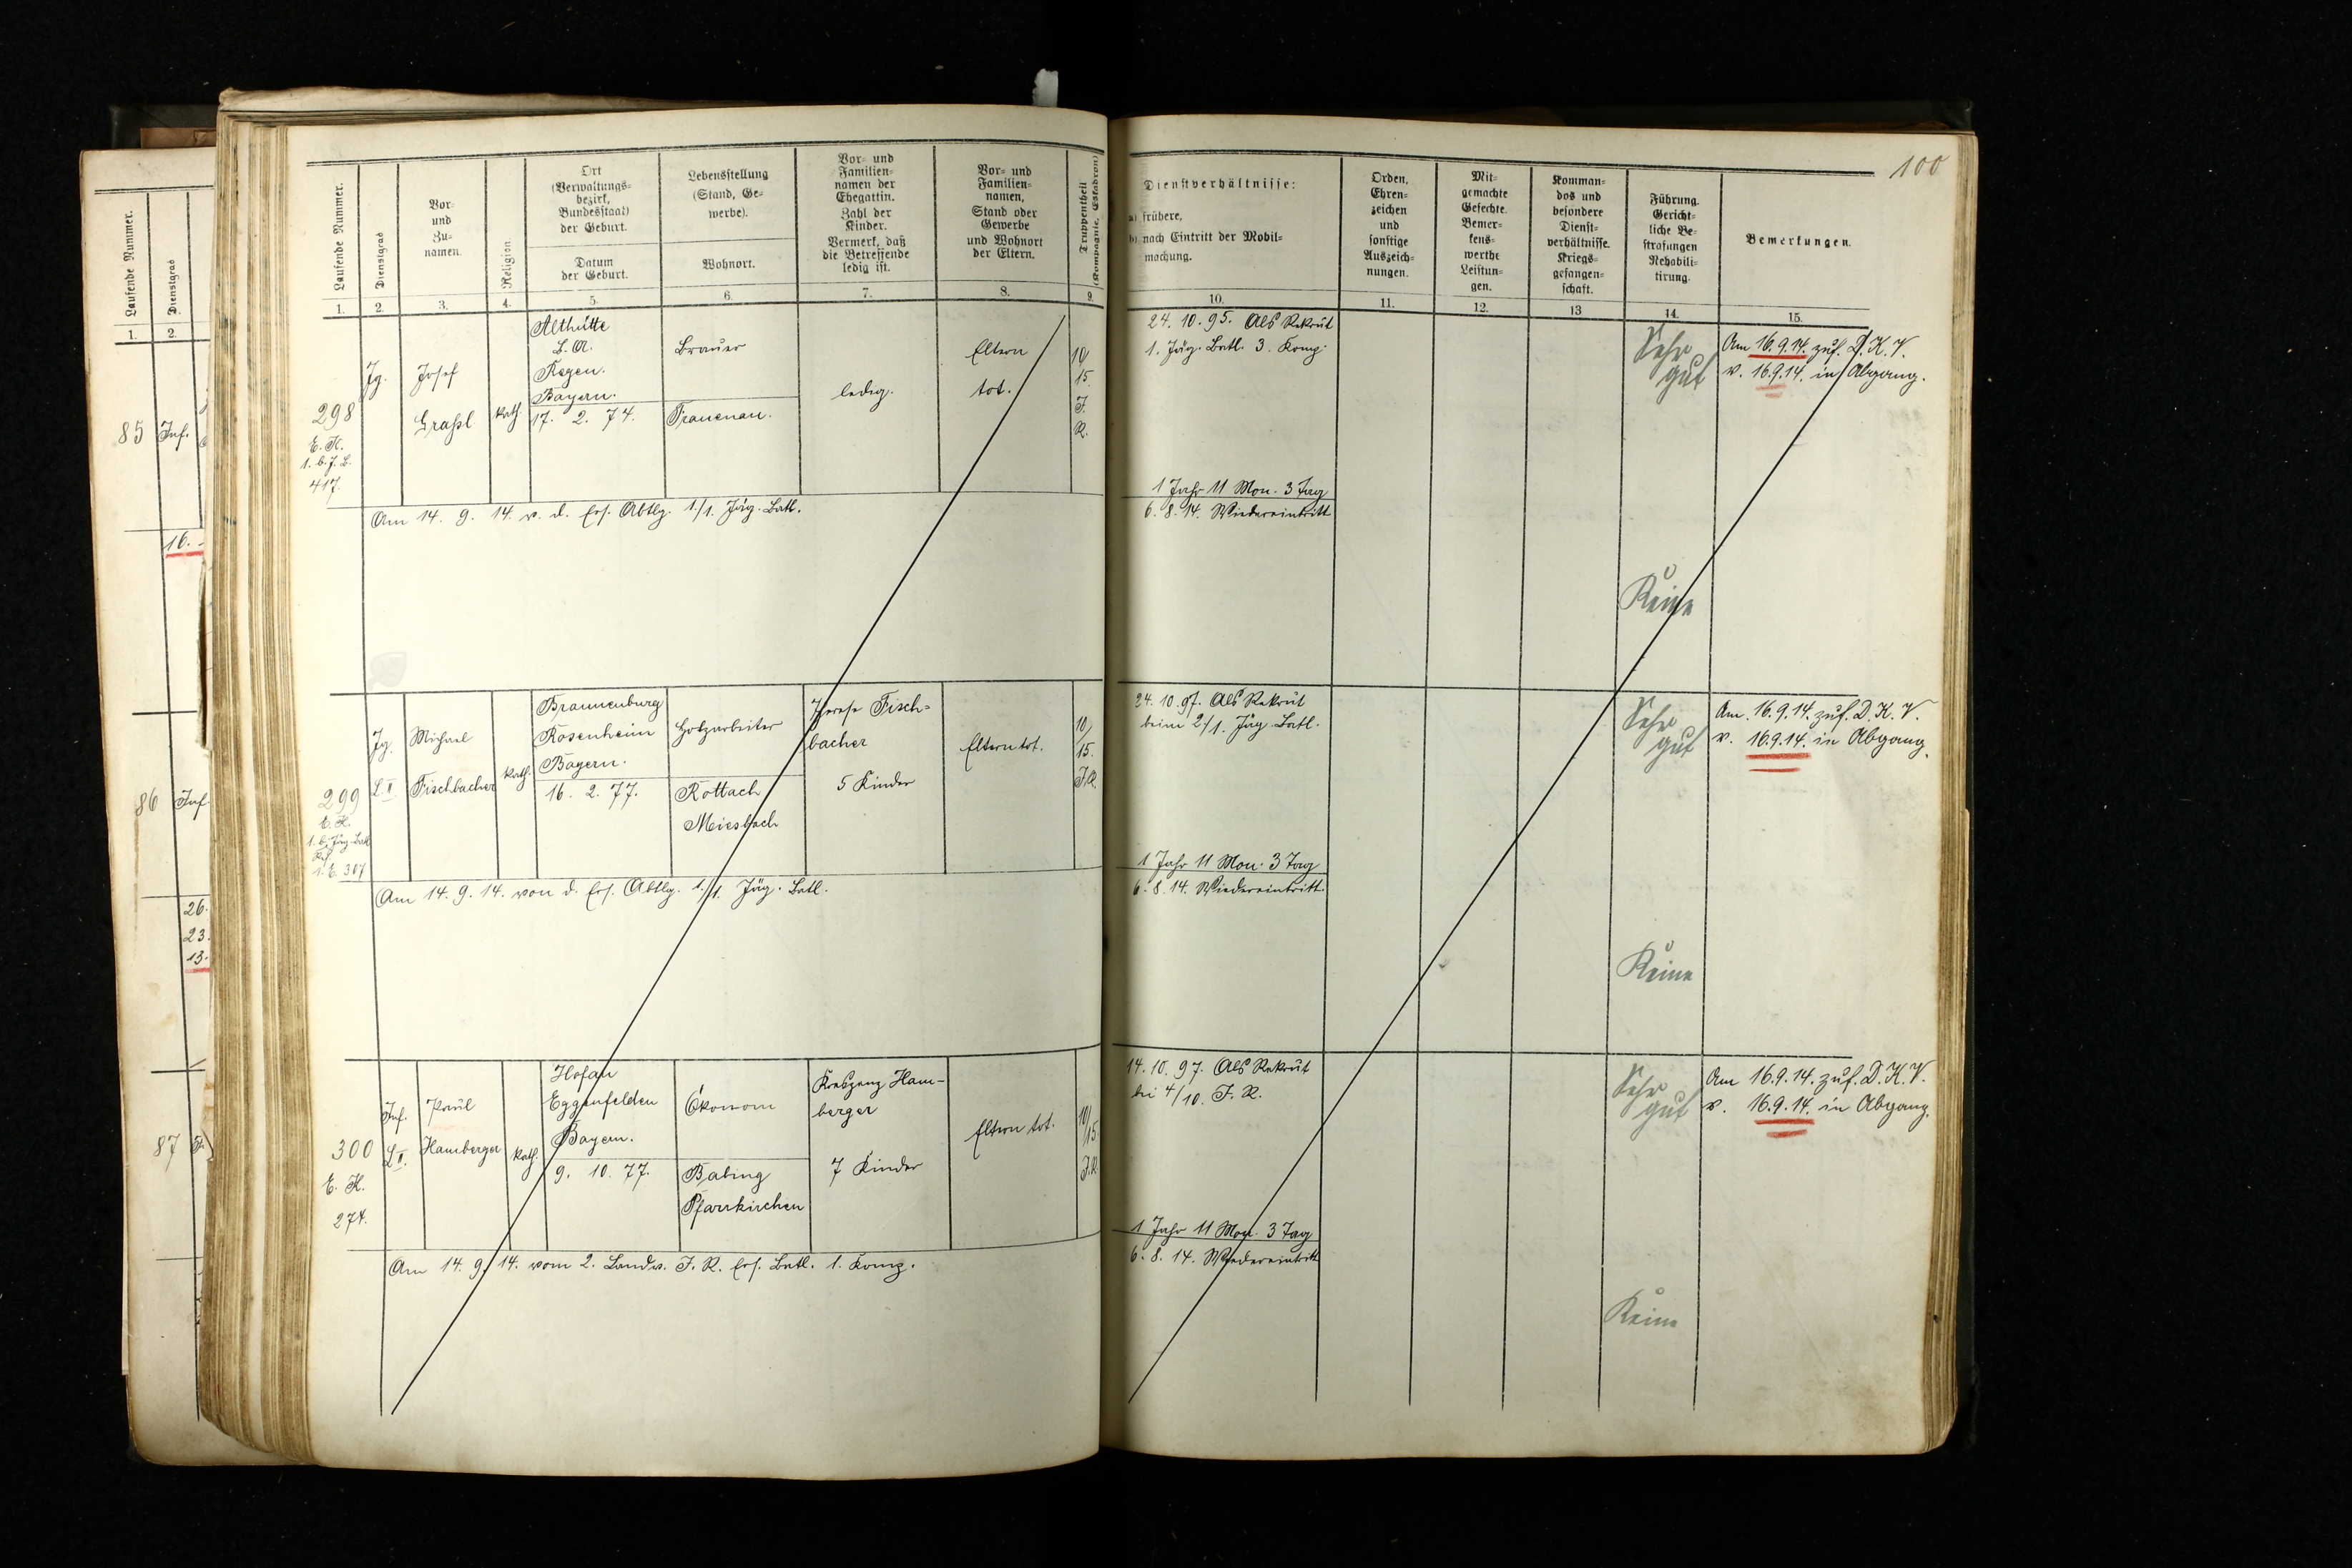 Laufende Nummer.
Dienstgrad
1.
2.
85
Inf.
16.
86
Inf.
26.
23.
13.
87
Laufende Nummer.
Dienstgrad
Vor-
und
Zu-
namen.
Religion.
Ort
(Verwaltungs-
bezirk,
Bundesstaat)
der Geburt.
Datum
der Geburt.
Lebensstellung
(Stand, Ge-
werbe).
Wohnort.
Vor- und
Familien-
namen der
Ehegattin.
Zahl der
Kinder.
Vermerk, daß
die Betreffende
ledig ist.
Vor- und
Familien-
namen,
Stand oder
Gewerbe
und Wohnort
der Eltern.
Truppentheil
(Kompagnie, Eskadron)
1.
2.
3.
4.
5.
6.
7.
8.
9.
298
E. K.
1. b. J. B.
417.
Jg.
Josef
Graßl
kath.
Althütte
B. A.
Regen.
Bayern.
17. 2. 74.
Brauer
Frauenau.
ledig.
Eltern
tot.
10/
15.
J.
R.
Am 14. 9. 14. v. d. Ers. Abtlg. 1./1. Jäg. Batl.
299
E. K.
1. b. Jäg. Batl.
1. E. 307
Jg.
L. II
Michael
Fischbacher
kath.
Brannenburg
Rosenheim
Bayern.
16. 2. 77.
Holzarbeiter
Rottach
Miesbach
Therese Fisch-
bacher
5 Kinder
Eltern tot.
10/
15.
J.R.
Am 14. 9. 14. von d. Ers. Abtlg. 1./1. Jäg. Batl.
300
E. K.
274.
Inf.
L II.
Paul
Hamberger
kath.
Hofau
Eggenfelden
Bayern.
9. 10. 77.
Ökonom
Babing
Pfarrkirchen
Kreszenz Ham-
berger
7 Kinder
Eltern tot.
10/
15.
J.R.
Am 14. 9. 14. vom 2. Landw. J. R. Ers. Batl. 1. Komp.
100
Dienstverhältnisse:
a) frühere,
b) nach Eintritt der Mobil-
machung.
Orden,
Ehren-
zeichen
und
sonstige
Auszeich-
nungen.
Mit-
gemachte
Gefechte.
Bemer-
kens-
werthe
Leistun-
gen.
Komman-
dos und
besondere
Dienst-
verhältnisse.
Kriegs-
gefangen-
schaft.
Führung.
Gericht-
liche Be-
strafungen
Rehabili-
tirung.
Bemerkungen.
10.
11.
12.
13
14.
15.
24. 10. 95. Als Rekrut
1. Jäg. Batl. 3. Komp.
1 Jahr 11 Mon. 3 Tag
6. 8. 14. Wiedereintritt
Sehr
gut
Keine
Am 16.9.14. zuf. D. K. V.
v. 16.9.14. in Abgang.
24. 10. 97. Als Rekrut
beim 2/1. Jäg. Batl.
1 Jahr 11 Mon. 3 Tag
6. 8. 14. Wiedereintritt.
Sehr
gut
Keine
Am 16.9.14. zuf. D. K. V.
v. 16.9.14. in Abgang.
14. 10. 97. Als Rekrut
bei 4/10. J. R.
1 Jahr 11 Mon. 3 Tag
6. 8. 14. Wiedereintritt
Sehr
gut
Keine
Am 16.9.14. zuf. D. K. V.
v. 16.9.14. in Abgang.